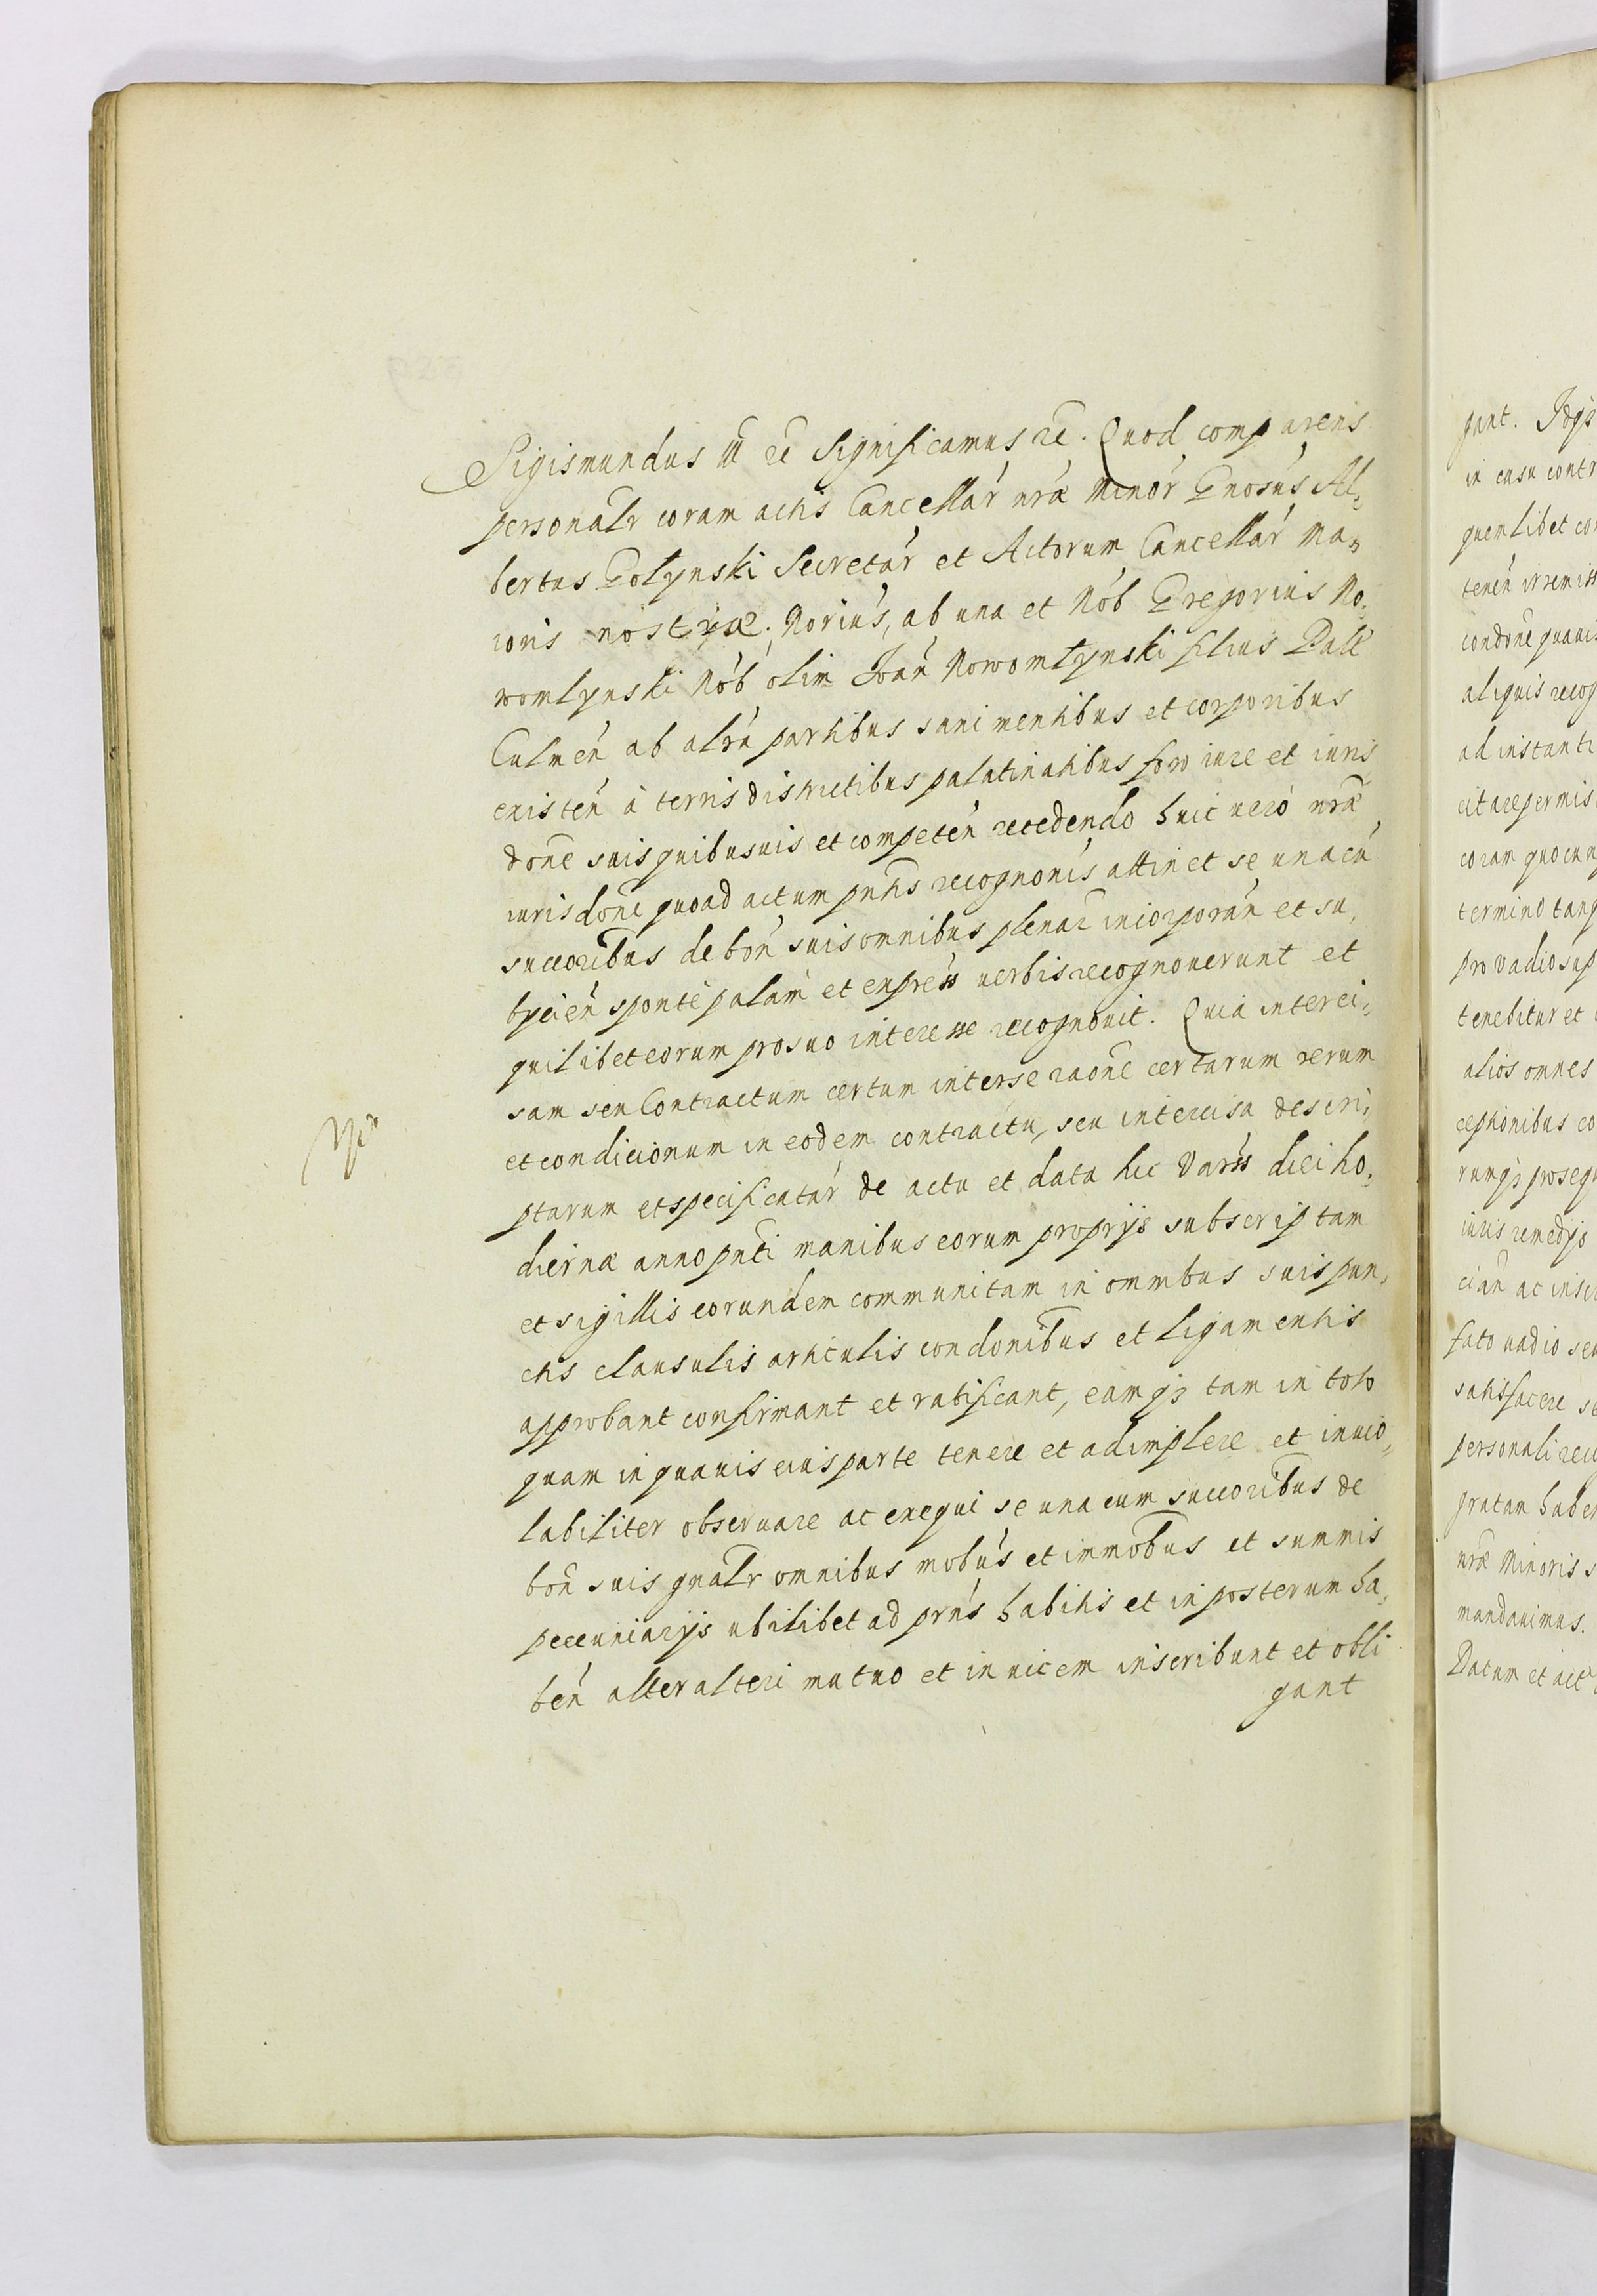 Sigismundus III etc Significamus etc. Quod comparens
personalr coram actis Cancellar nrae Minor Gnosus Al-
bertus Gotynski Secretar et Actorum Cancellar Ma-
ioris nostrae Notius, ab una et Nob Gregorius No-
womlynski Nob olim Joan Nowomlynski filius Palt
Culmen ab altra partibus sani mentibus et corporibus
existen à terris districtibus palatinatibus foro iure et iuris
done suis quibusuis et competen recedendo huic vero nrae
iurisdone quoad actum pntis recognonis attinet se unacu
succoribus de bon suis omnibus plenar incorporan et su-
bycien sponte palam et express verbis recognouerunt et
quilibet eorum pro suo interesse recognouit. Quia interci-
sam seu Contractum certum inter se raone certarum rerum
et condicionum in eodem contractu, seu intercisa descri-
ptarum et specificatar de actu et data hic Vars diei ho-
diernae anno pnti manibus eorum proprijs subscriptam
et sigillis eorundem communitam in omnibus suis pun-
ctis clausulis articulis condonibus et ligamentis
approbant confirmant et ratificant, eamqz tam in toto
quam in quauis eius parte tenere et adimplere et inuio-
labiliter obseruare ac exequi se una cum succoribus de
bon suis gnalr omnibus mobus et immobus et summis
pecuniarijs ubilibet ad prns habitis et in posterum ha-
ben alter alteri mutuo et inuicem inscribunt et obli
gant
gant. Idqz
in casu contr
quemlibet con
tenen irremiss
condone quauis
aliquis recog
ad instanti
citare permis
coram quocun
termino tanq
pro vadio sup
tenebitur et
alios omnes
ceptionibus co
rungz prosequ
iuris remedyo
cian ac inscr
fato uadio seu
satisfacere se
personali rec
gratam haber
nrae Minoris s
mandauimus.
Datum et act